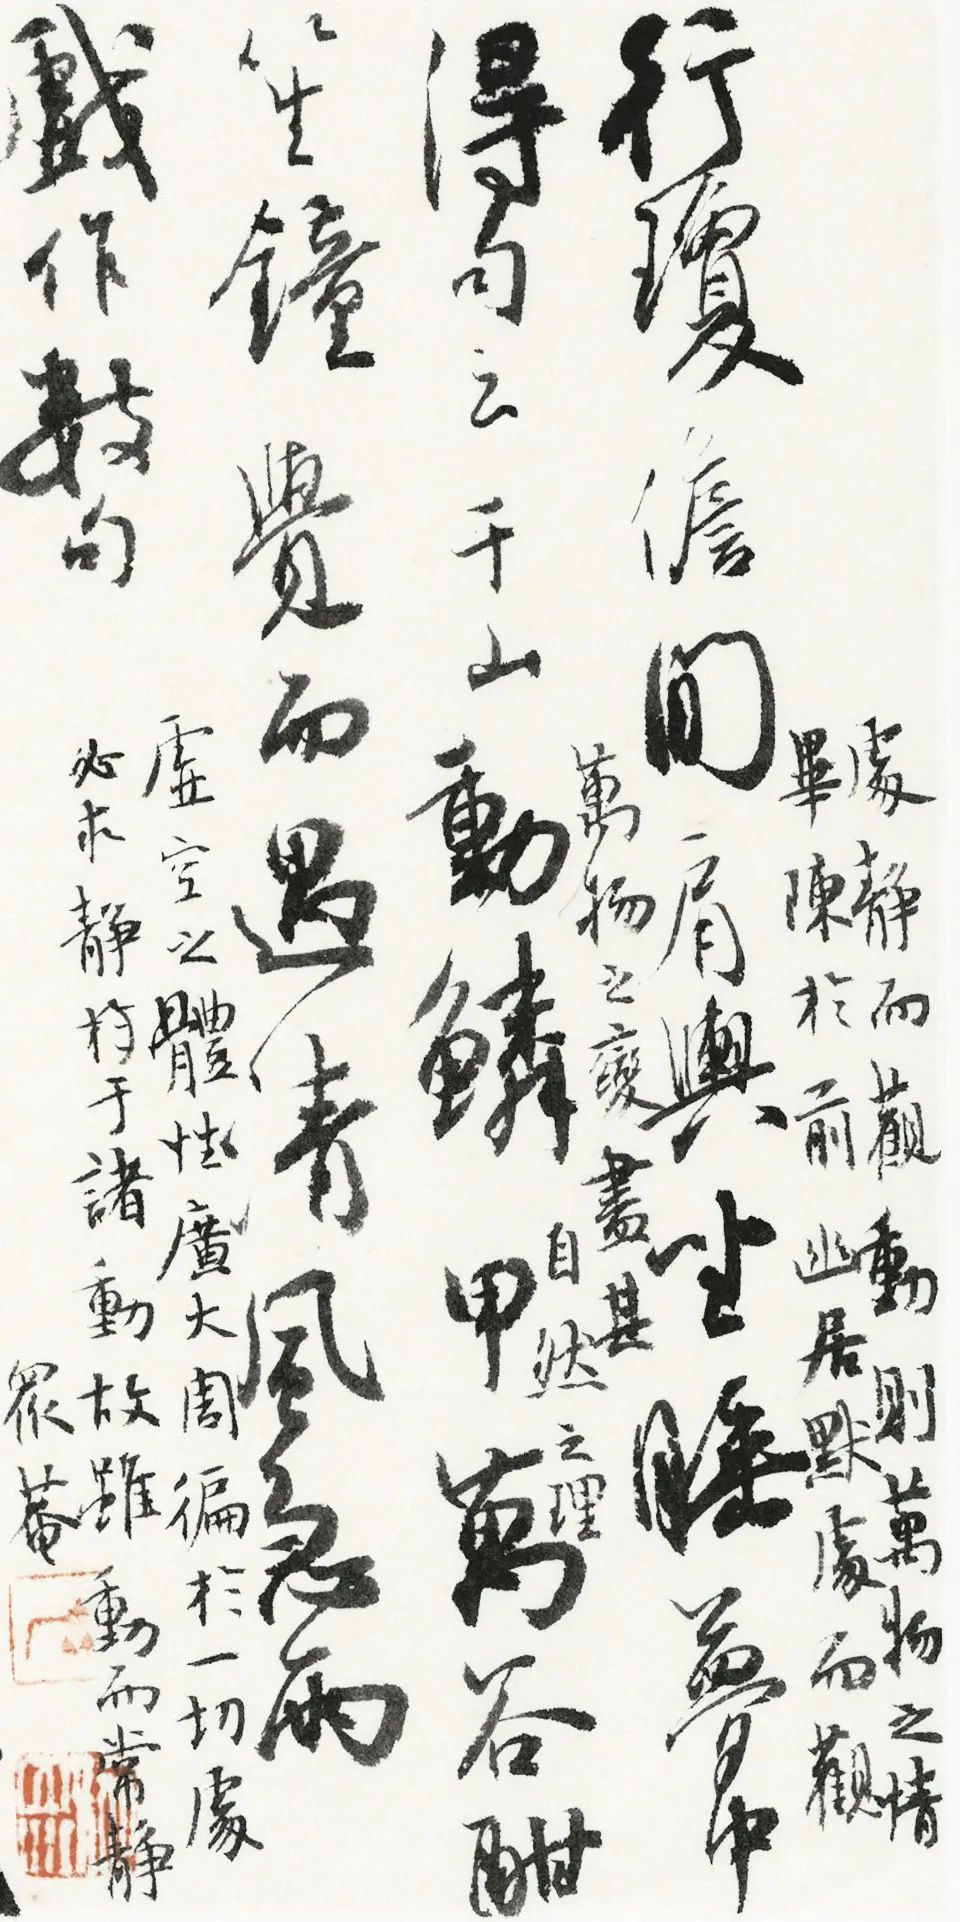 處靜而觀動則萬物之情
畢陳於前幽居默處而觀
行瓊儋間肩輿坐睡夢中
萬物之變盡其
自然之理
得句云千山動鱗甲萬谷酣
笙鐘覺而遇清風急雨
虛空之體性廣大周徧於一切處
戲作數句
必求靜於于諸動故雖動而常靜
菴